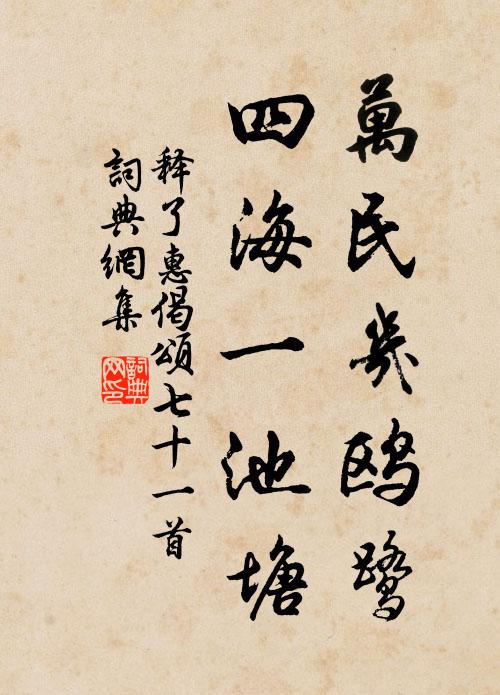 萬民幾鸥鹭
四海一池塘
释了惠偈頌七十一首
詞典網集
詞典网印